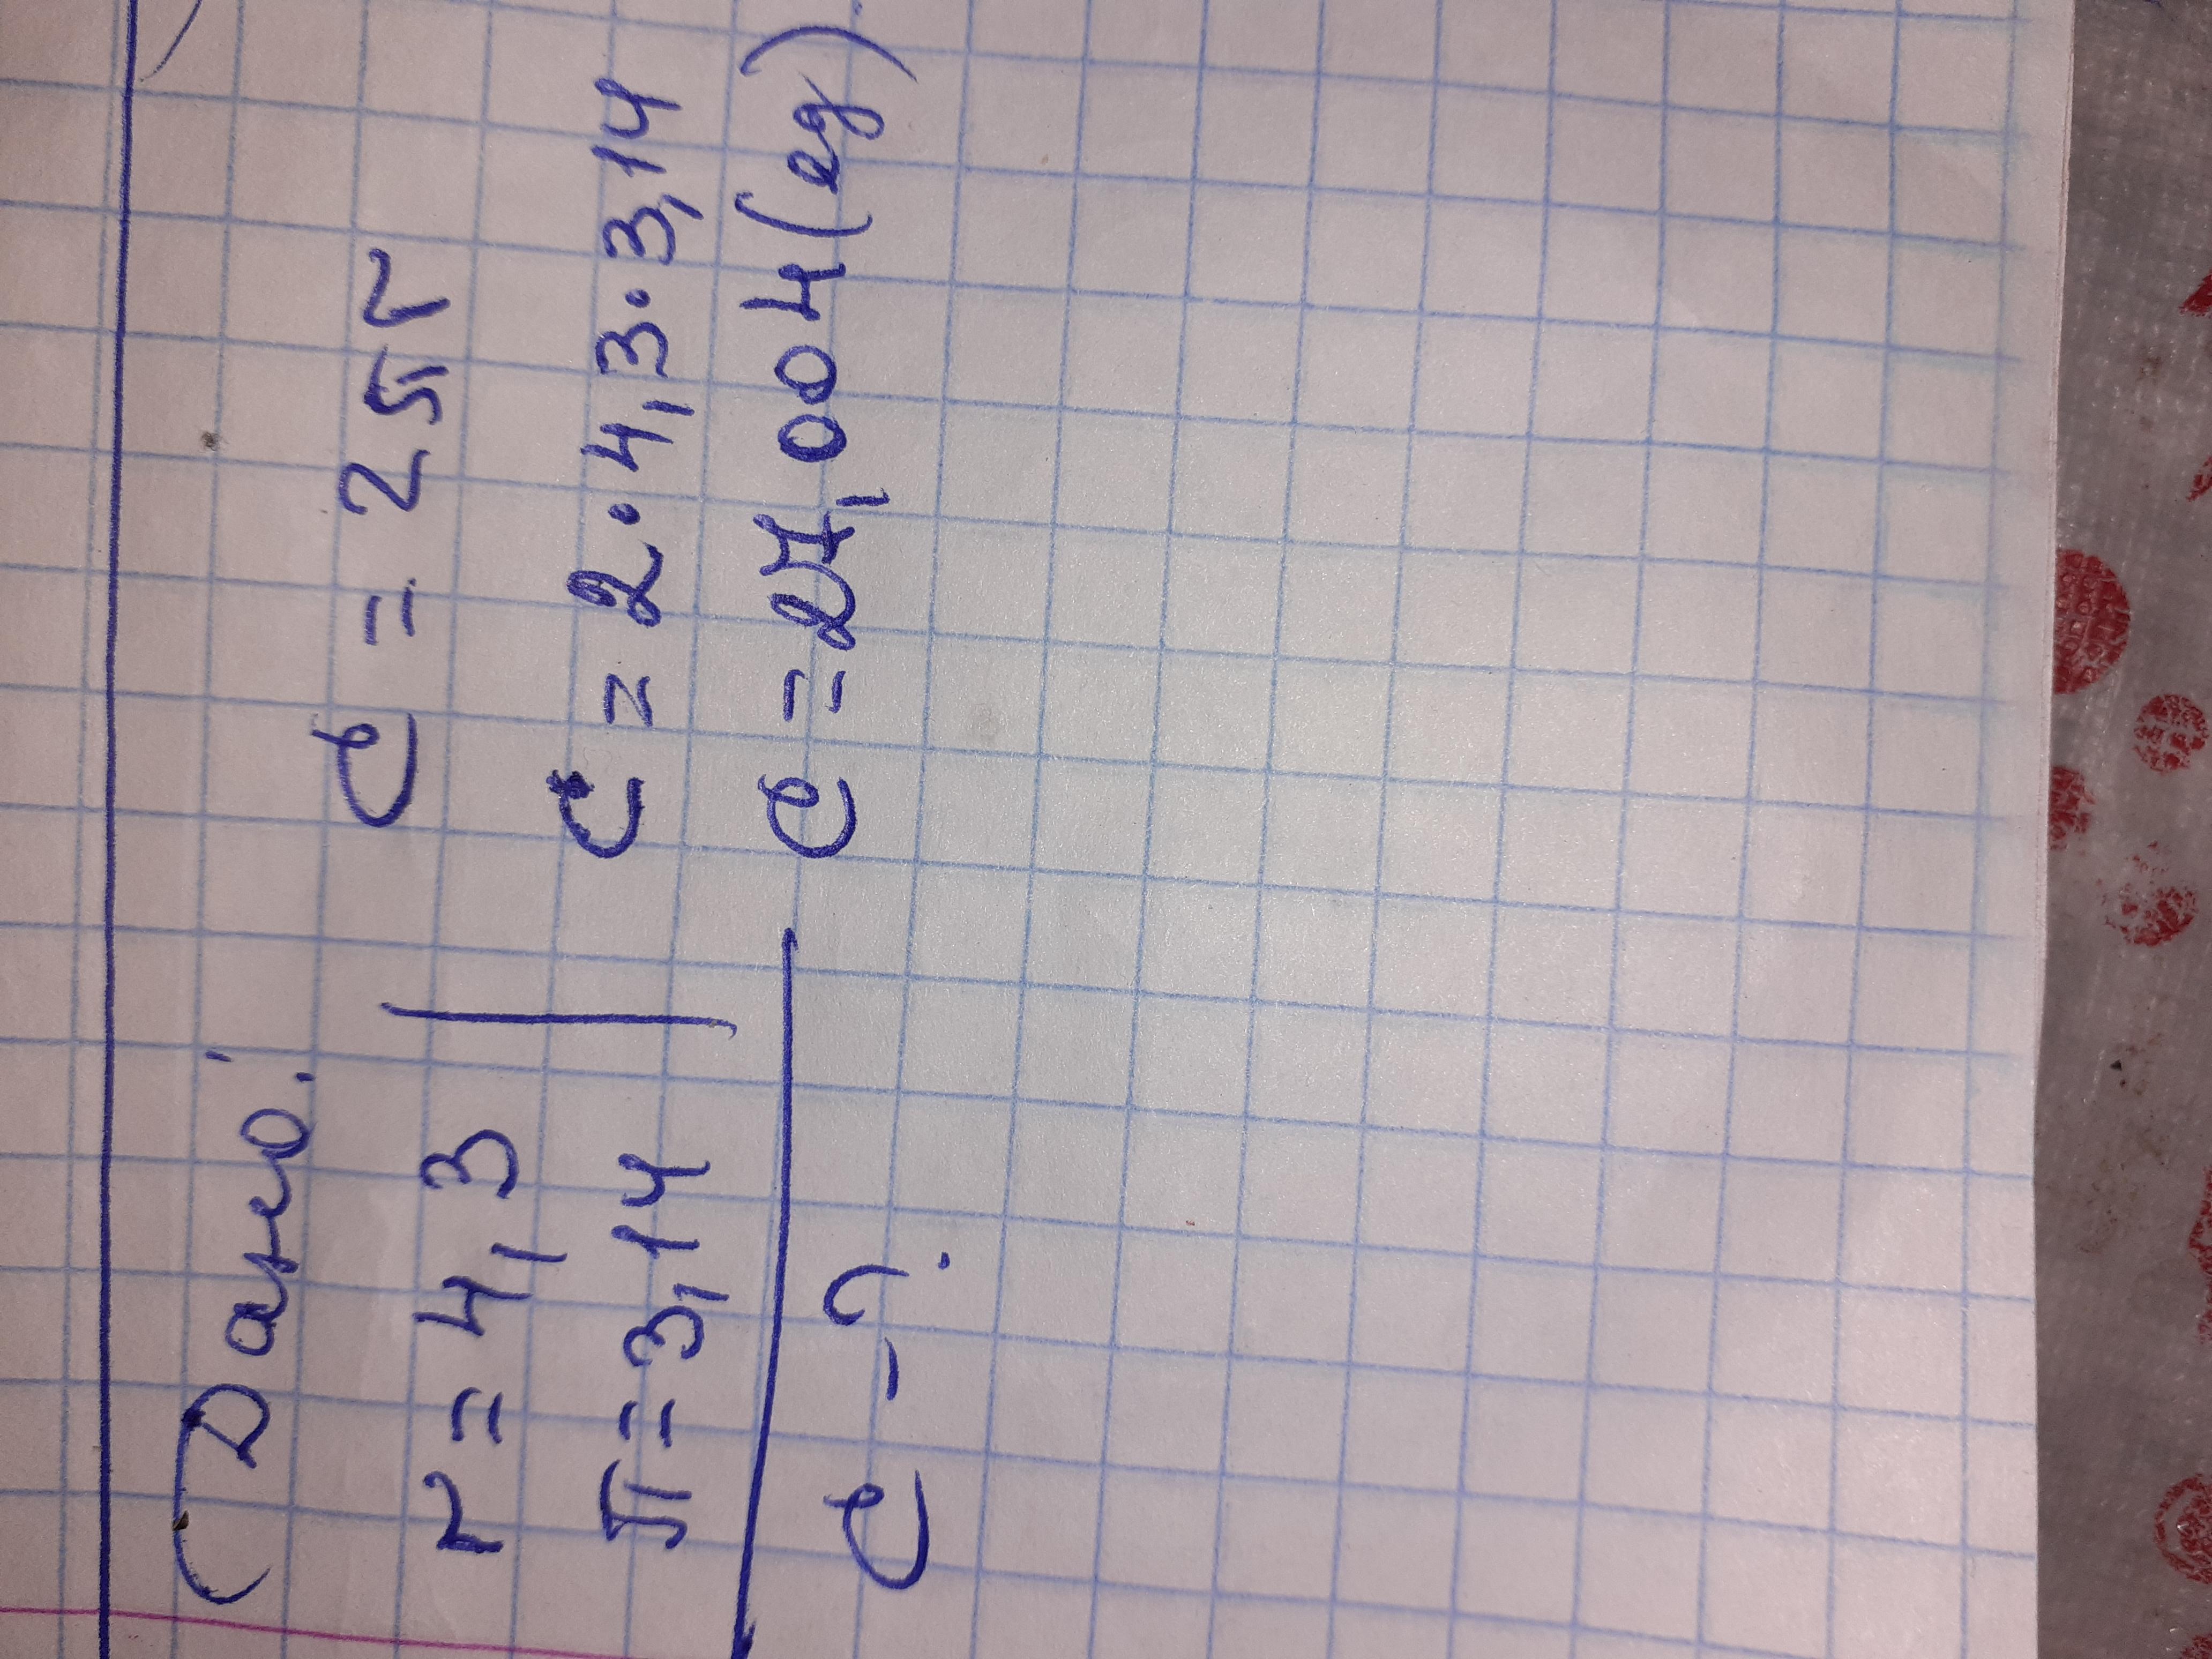 Дано:
r = 4,3
π = 3,14
C - ?
C = 2πr
C = 2·4,3·3,14
C = 27,004 (ед)